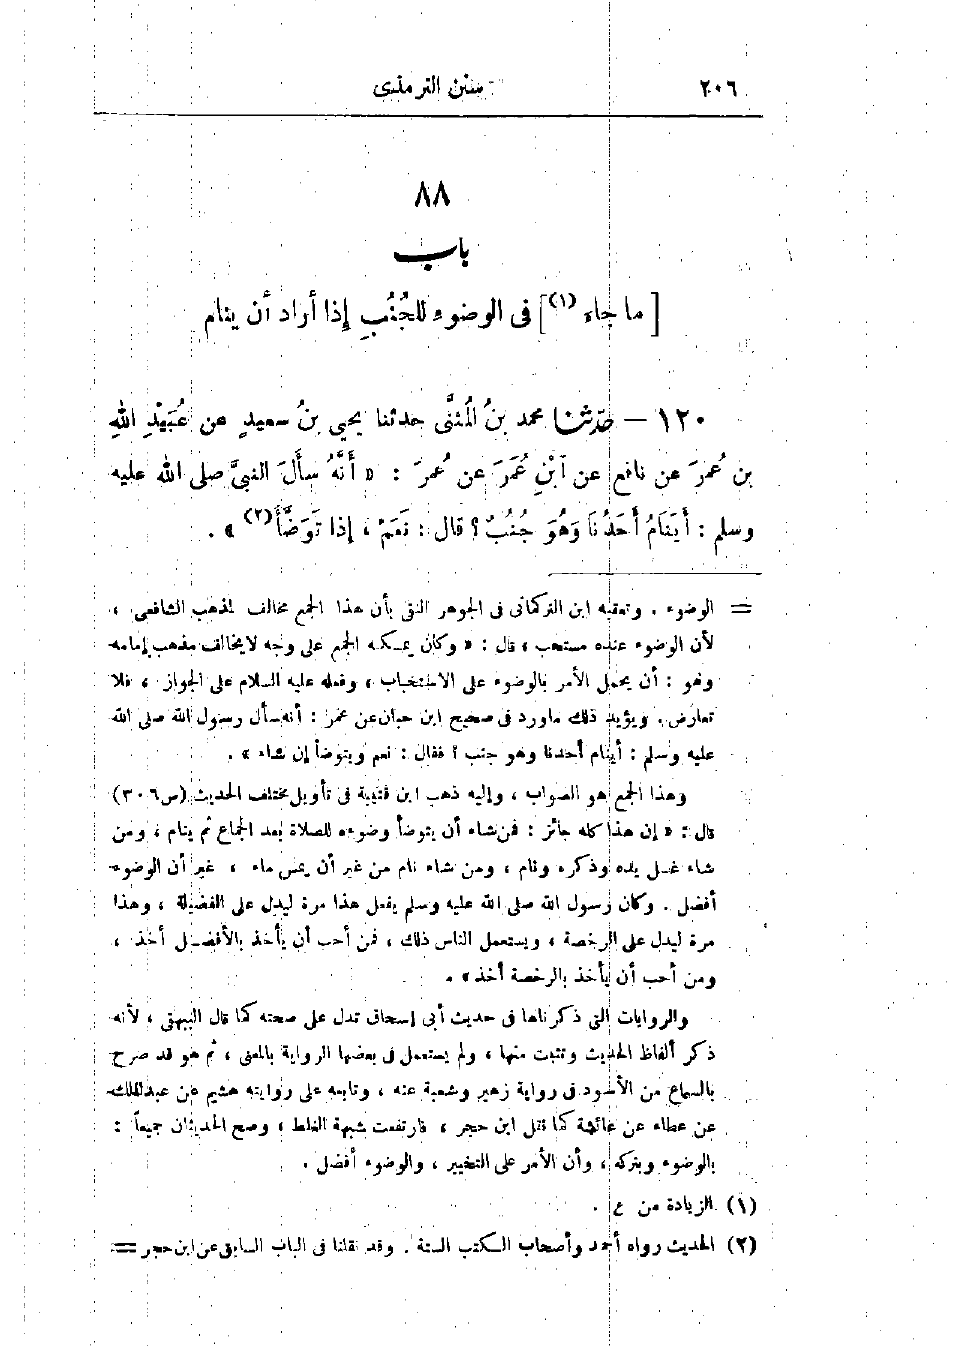 ٢٠٦ سنن الترمذى
٨٨
باب
[ ما جاء (١) ] فى الوضوء للجُنُبِ إِذا أراد أن ينام
١٢٠ — حدّثنا محمد بنُ المُثنَّى حدثنا يحيى بنُ سعيدٍ عن عُبَيْدِ اللهِ
بن عُمرَ عن نافعٍ عن ابْنِ عُمَرَ عن عُمرَ : « أَنَّهُ سأَلَ النبىَّ صلى الله عليه
وسلم : أَيَنَامُ أَحَدُنَا وَهُوَ جُنُبٌ ؟ قال : نَعَمْ ، إِذا تَوَضَّأَ (٢) » .
= الوضوء . وتعقبه ابن التركمانى فى الجوهر النقى بأن هذا الجمع مخالف لمذهب الشافعى ،
لأن الوضوء عنده مستحب ، قال : « وكان يمكنه الجمع على وجه لا يخالف مذهب إمامه
وهو : أن يحمل الأمر بالوضوء على الاستحباب ، وفعله عليه السلام على الجواز ، فلا
تعارض . ويؤيد ذلك ماورد فى صحيح ابن حبان عن عمر : أنه سأل رسول الله صلى الله
عليه وسلم : أينام أحدنا وهو جنب ؟ فقال : نعم ويتوضأ إن شاء » .
وهذا الجمع هو الصواب ، وإليه ذهب ابن قتيبة فى تأويل مختلف الحديث (ص ٣٠٦)
قال : « إن هذا كله جائز : فمن شاء أن يتوضأ وضوءه للصلاة بعد الجماع ثم ينام ، ومن
شاء غسل يده وذكره ونام ، ومن شاء نام من غير أن يمس ماء ، غير أن الوضوء
أفضل . وكان رسول الله صلى الله عليه وسلم يفعل هذا مرة ليدل على الفضيلة ، وهذا
مرة ليدل على الرخصة ، ويستعمل الناس ذلك ، فمن أحب أن يأخذ بالأفضل أخذ ،
ومن أحب أن يأخذ بالرخصة أخذ » .
والروايات التى ذكرناها فى حديث أبى إسحاق تدل على صحته كما قال البيهقى ، لأنه
ذكر ألفاظ الحديث وتثبت منها ، ولم يستعمل فى بعضها الرواية بالمعنى ، ثم هو قد صرح
بالسماع من الأسود فى رواية زهير وشعبة عنه ، وتابعه على روايته هشيم عن عبدالملك
عن عطاء عن عائشة كما نقل ابن حجر ، فارتفعت شبهة الغلط ، وصح الحديثان جميعاً :
بالوضوء وبتركه ، وأن الأمر على التخيير ، والوضوء أفضل .
(١) الزيادة من ع .
(٢) الحديث رواه أحمد وأصحاب الكتب الستة . وقد نقلنا فى الباب السابق عن ابن حجر =